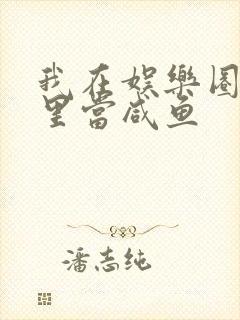 我在娱樂圈
里當咸鱼
潘志纯